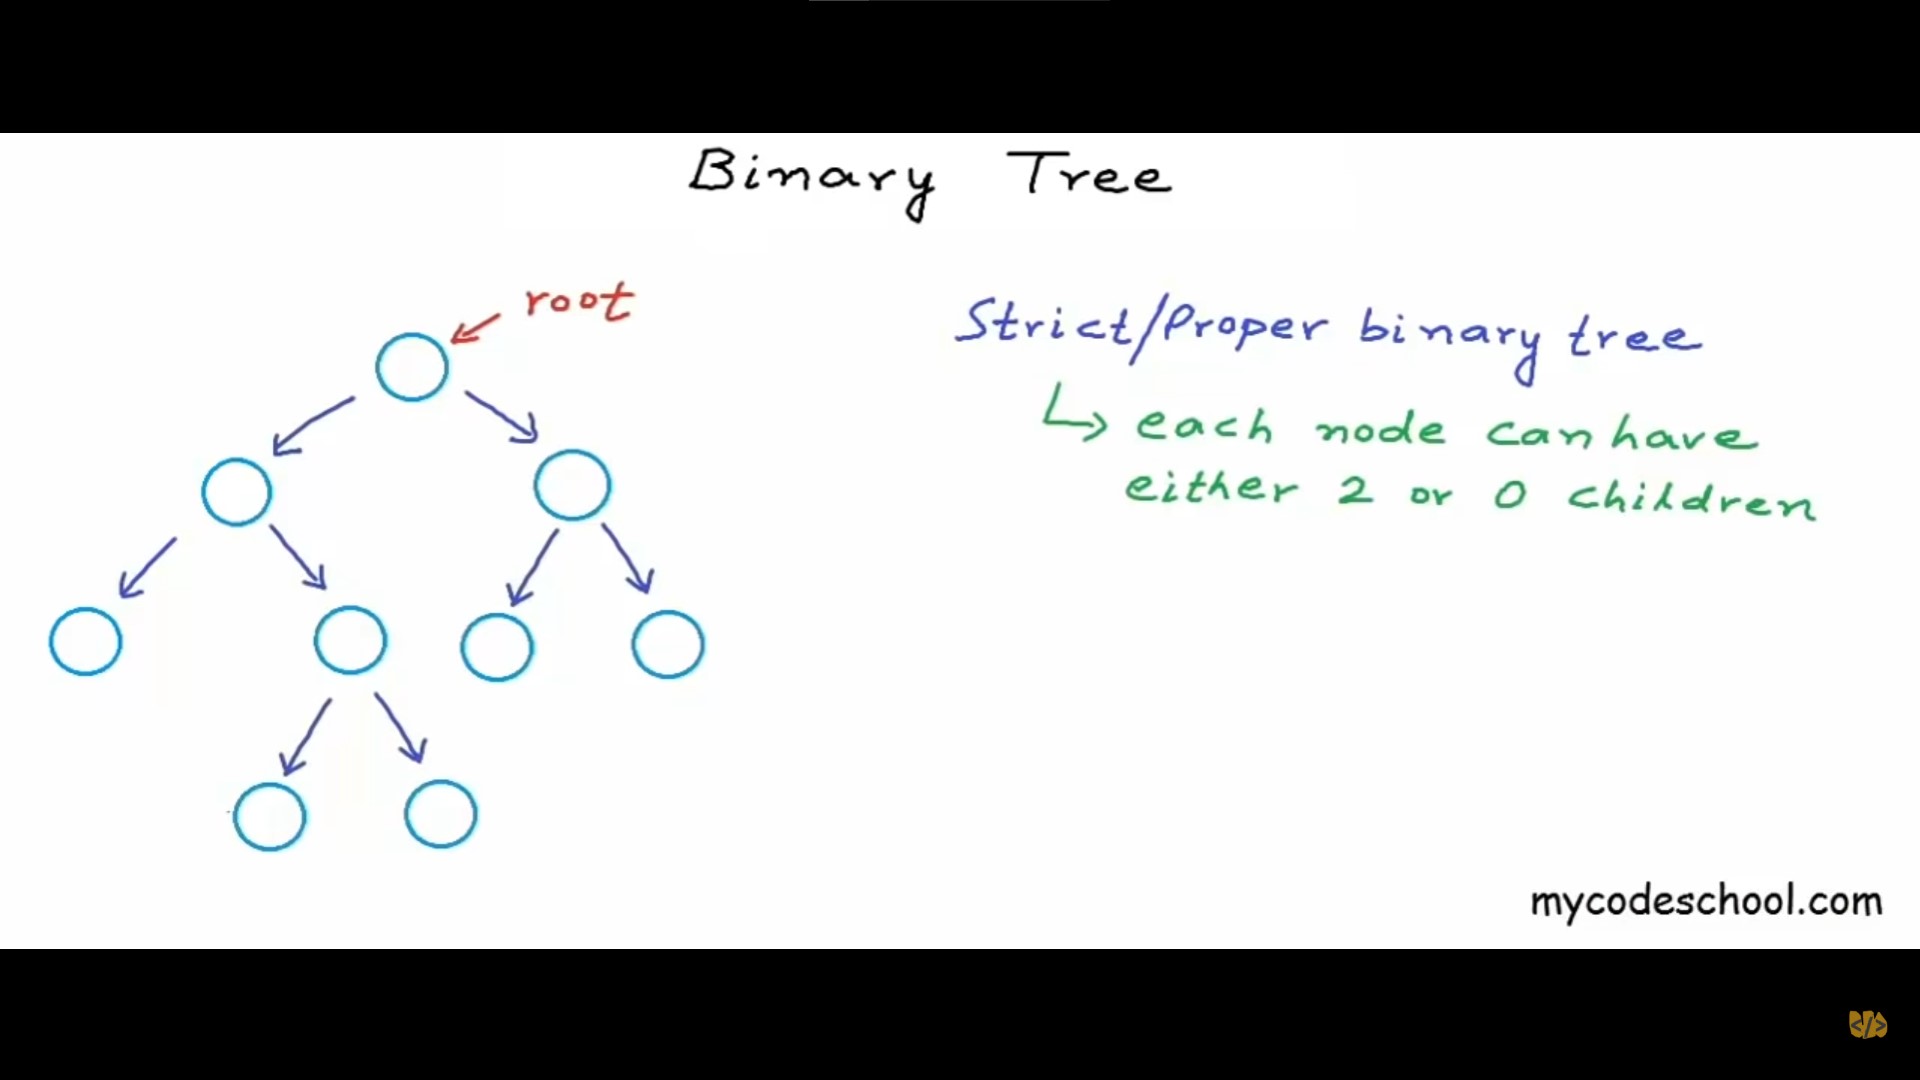 Binary Tree
root
Strict/Proper binary tree
each node can have
either 2 or 0 children
mycodeschool.com
</>